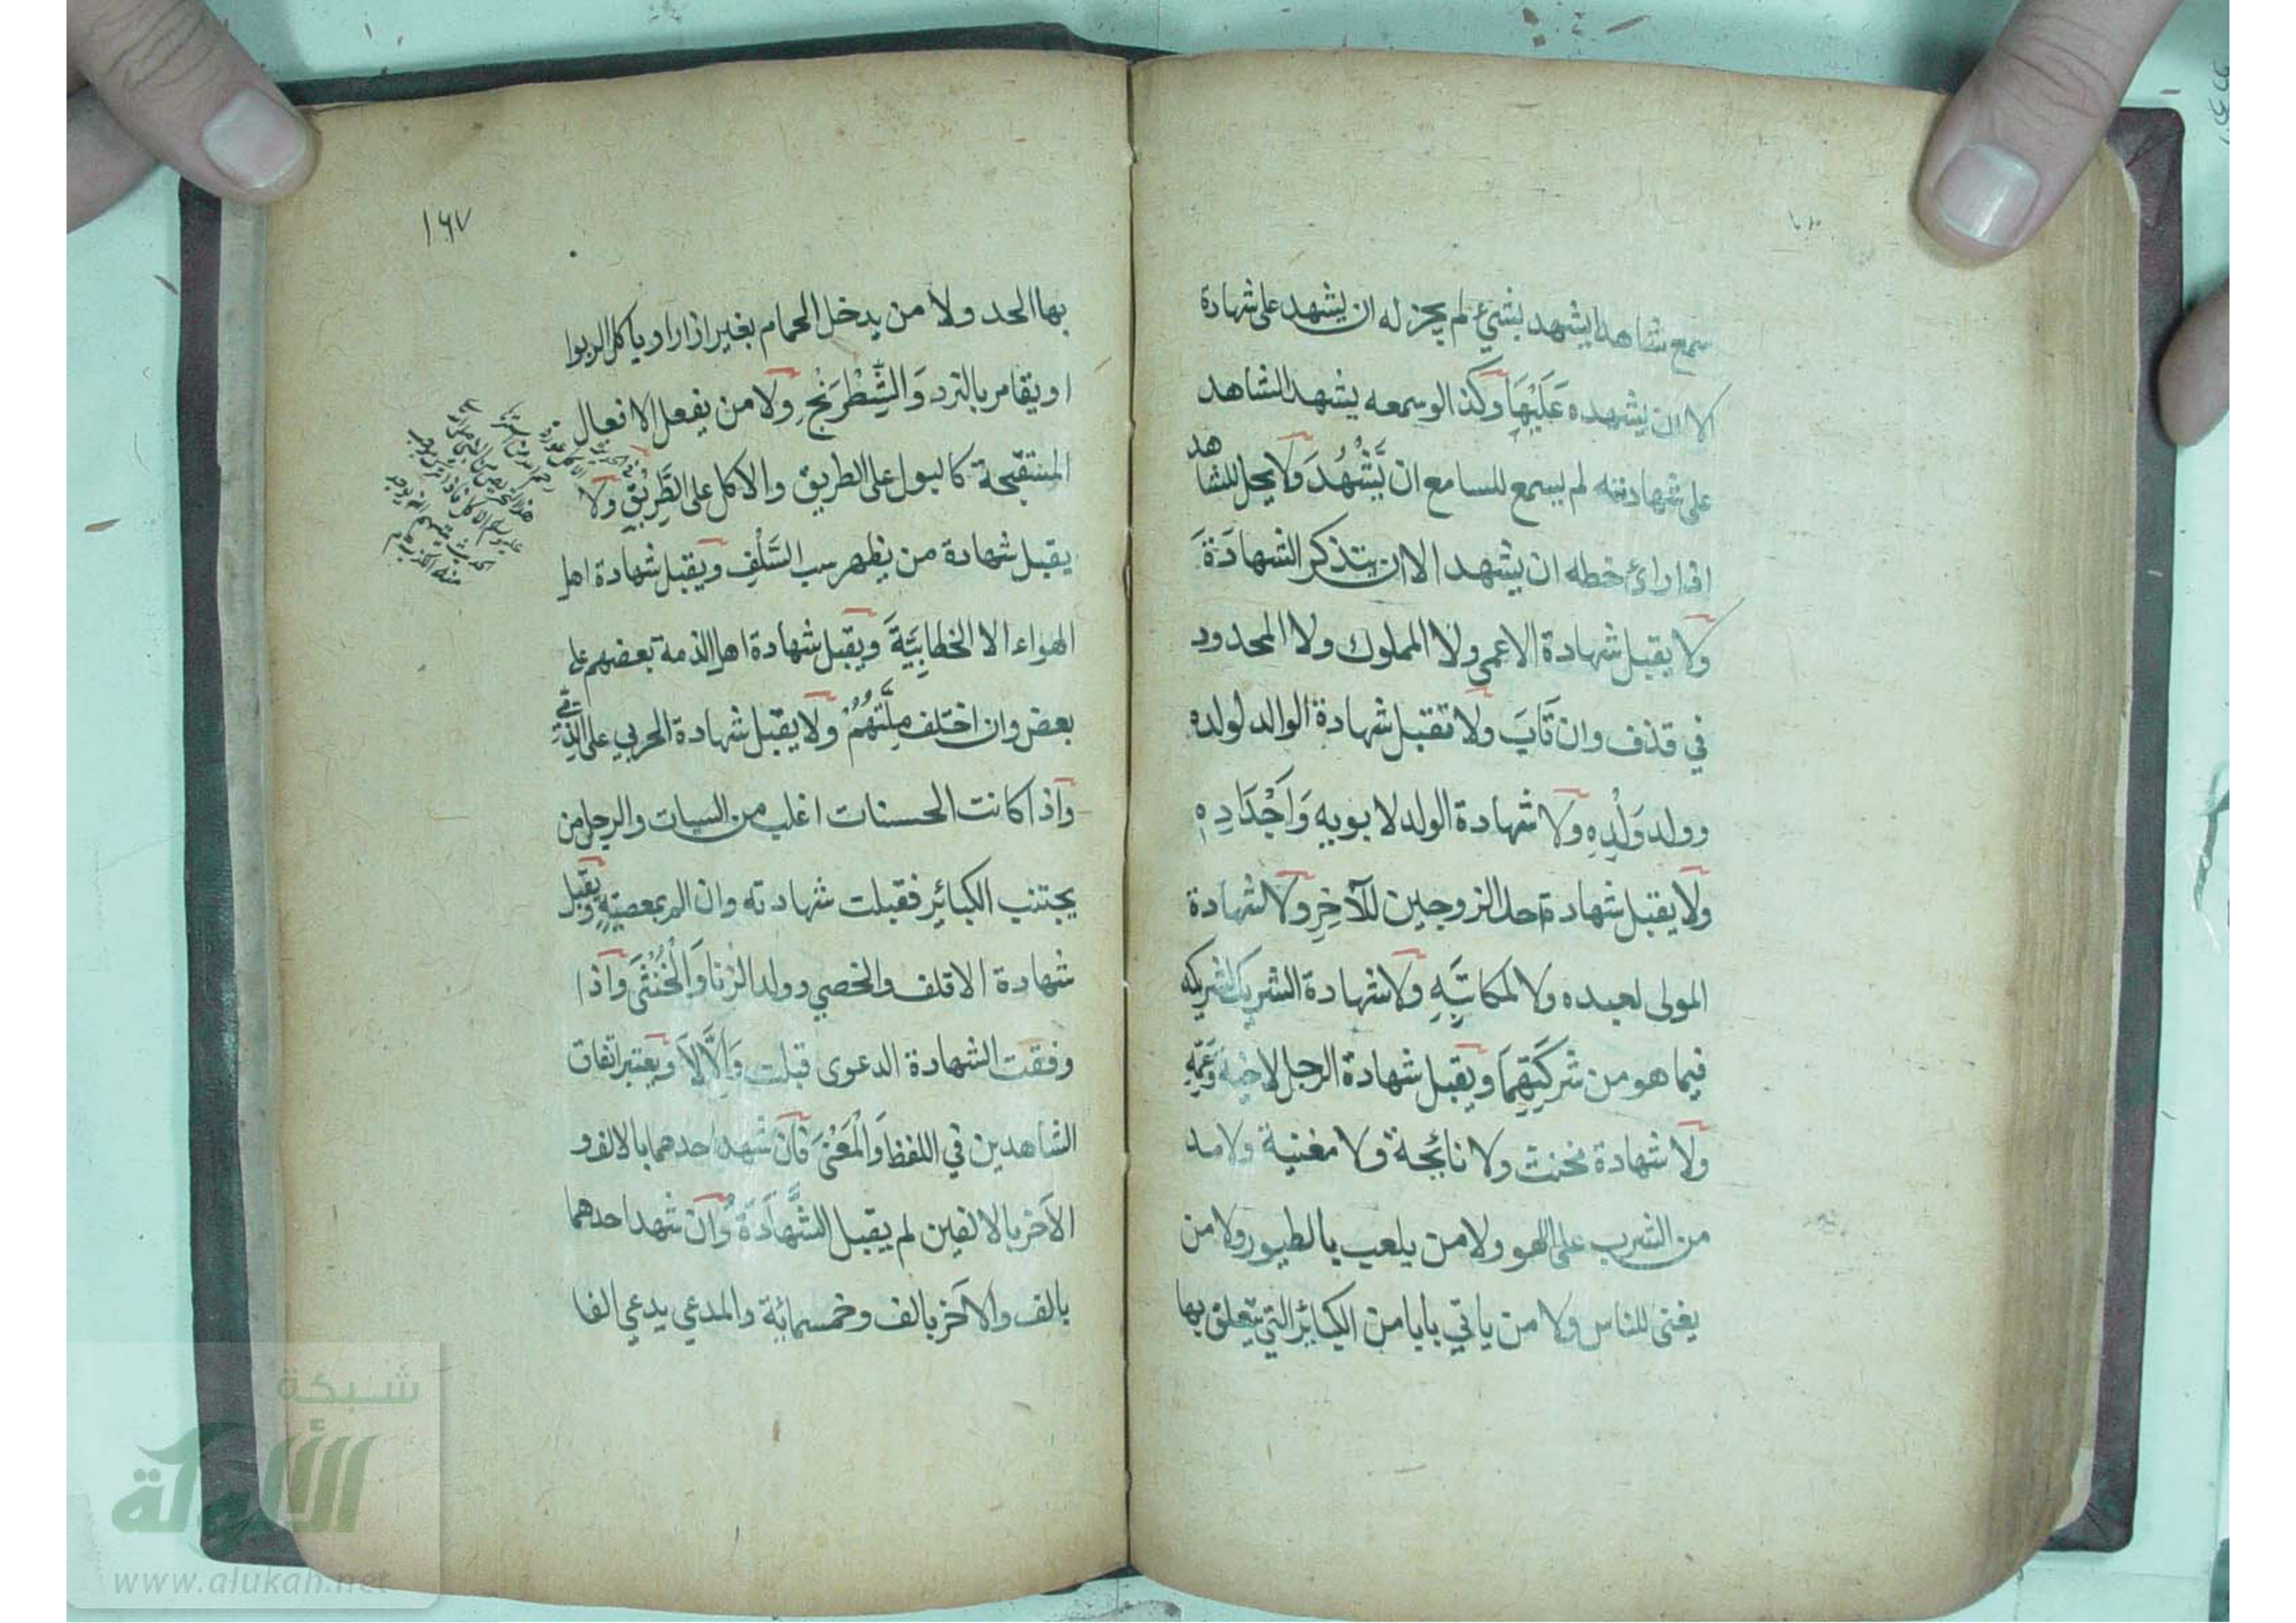 سمع شاهدا يشهد بشيء لم يجز له ان يشهد على شهادة
الا ان يشهده عَلَيْهَا وكذا لو سمعه يشهد الشاهد
على شهادته لم يسمع للسامع ان يَّشْهُدَ ولا يحل للشاهد
اذا رائ خطه ان يشهد الا ان يتذكر الشهادَةَ
ولا يقبل شهادة الاعمى ولا المملوك ولا المحدود
في قذف وان تَابَ ولا تقبل شهادة الوالد لولده
وولد وَلَدِهِ ولا شهادة الولد لابويه وَاَجْدَادِهِ
ولا يقبل شهادة احد الزوجين للآخِرِ ولا شهادة
المولى لعبده ولا لمكاتَبِهِ ولا شهادة الشريك لشريكه
فيما هو من شركَتِهِمَا ويقبل شهادة الرجل لاخيه وَعَمِّهِ
ولا شهادة مخنث ولا نائحة ولا مغنية ولا مد
من الشرب على اللهو ولا من يلعب بالطيور ولا من
يغنى للناس ولا من ياتي بابا من الكبائر التي يتعلق بها
١٦٧
بها الحد ولا من يدخل الحمام بغير ازار او ياكل الربوا
او يقامر بالنرد وَالشِّطْرَنْجِ ولا من يفعل الافعال
المستقبحة كالبول على الطريق والاكل على الطَّرِيْقِ ولا
يقبل شهادة من يظهر سب السَّلْفِ ويقبل شهادة اهل
الهواء الا الخطابِيَّةَ ويقبل شهادة اهل الذمة بعضهم على
بعض وان اختلف مِلَّتَهُمْ ولا يقبل شهادة الحربي على الذِّمِّي
واذا كانت الحسنات اغلب من السيات والرجل من
يجتنب الكبائر فقبلت شهادته وان الم بمعصيَةٍ ويقبل
شهادة الاقلف والخصي وولد الزنا وَالْخُنْثَى واذا
وفقت الشهادة الدعوى قبلت وَاِلَّا لَا ويعتبر اتفاق
الشاهدين في اللفظ وَالْمَعْنَى فان شهد احدهما بالالف و
الآخر بالالفين لم يقبل الشَّهَادَةُ وان شهد احدهما
بالف والآخر بالف وخمسمائة والمدعي يدعي الفا
شبكة
الألوكة
www.alukah.net